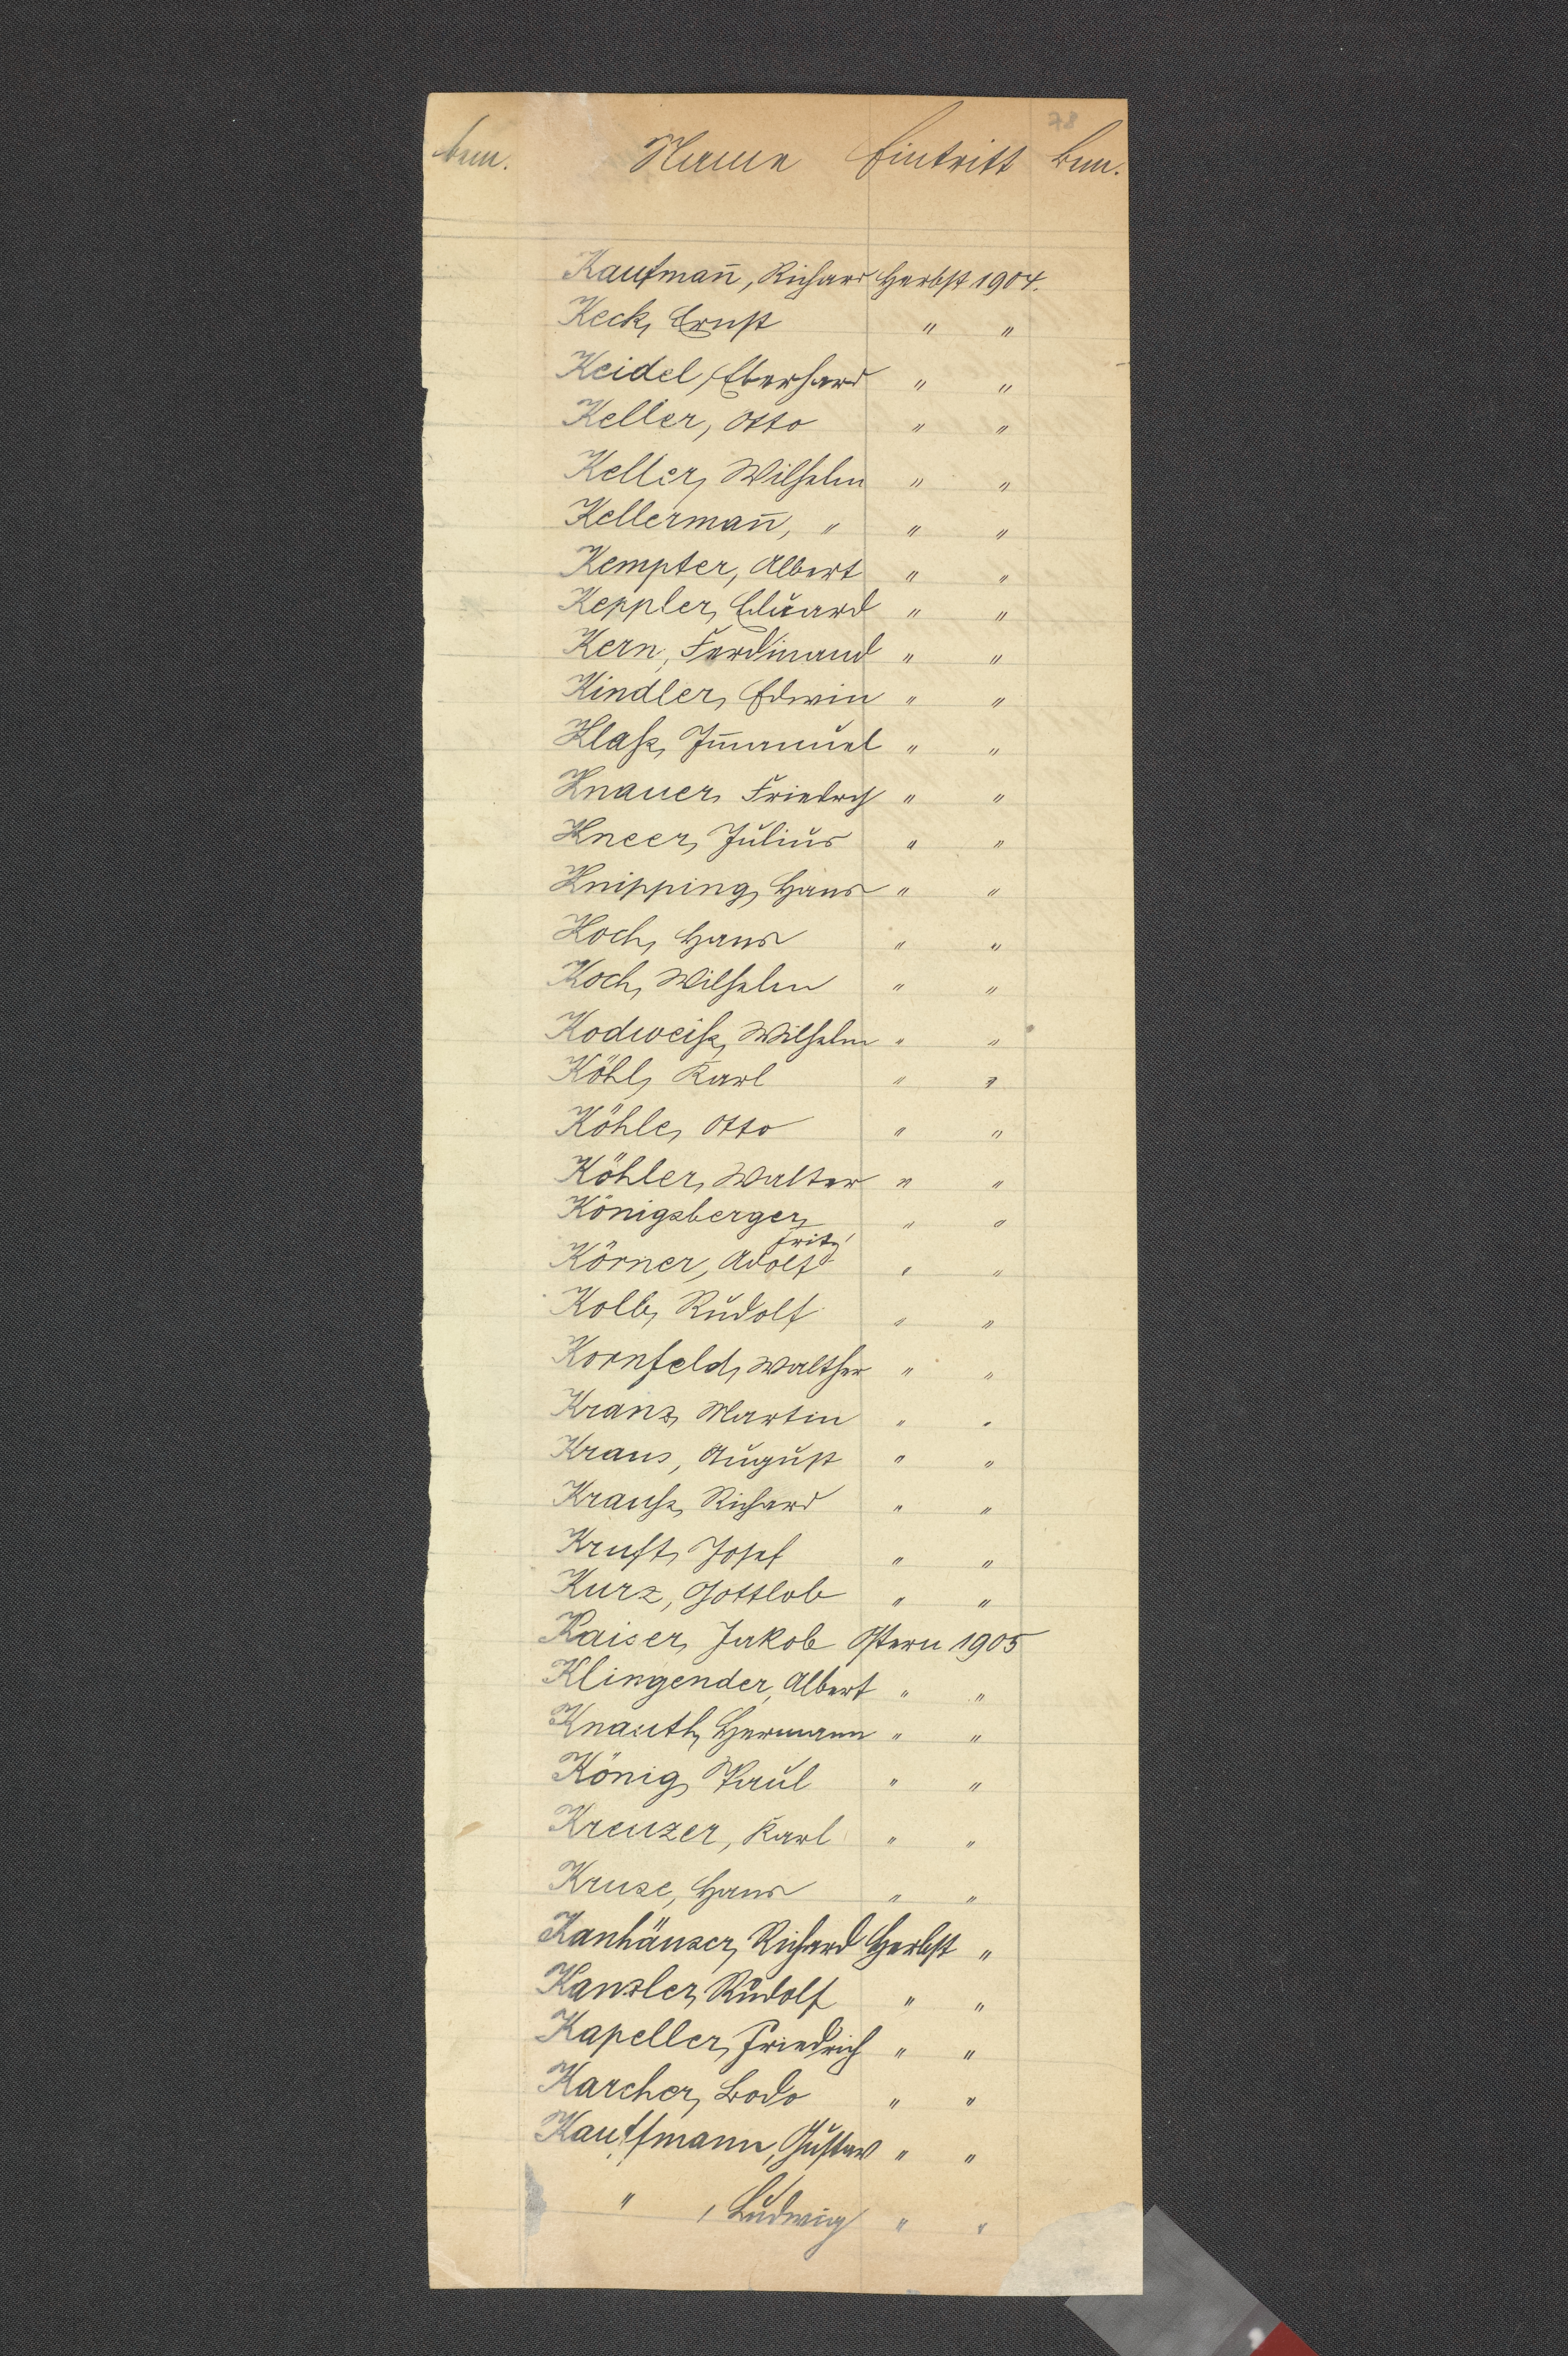 78
Bem. Name Eintritt Bem.
Kaufman̅, Richard Herbst 1904.
Keck, Ernst " "
Keidel, Eberhard " "
Keller, Otto " "
Keller, Wilhelm " "
Kellerman̅, " " "
Kempter, Albert " "
Keppler, Eduard " "
Kern, Ferdinand " "
Kindler, Edwin " "
Klaß, Im̅anuel " "
Knauer, Friedrich " "
Kneer, Julius " "
Knipping, Hans " "
Koch, Hans " "
Koch, Wilhelm " "
Kodweiß, Wilhelm " "
Köhl, Karl " "
Köhle, Otto " "
Köhler, Walter " "
Königsberger, " "
Fritz
Körner, Adolf " "
Kolb, Rudolf " "
Kornfeld, Walther " "
Kranz, Martin " "
Kraus, August " "
Krauß, Richard " "
Kruft, Josef " "
Kurz, Gottlob " "
Kaiser, Jakob Ostern 1905
Klingender, Albert " "
Knauth, Hermann " "
König, Paul " "
Kreuzer, Karl " "
Kruse, Hans " "
Kanhäuser, Richard Herbst "
Kanzler, Rudolf " "
Kapeller, Friedrich " "
Karcher, Bodo " "
Kauffmann, Gustav " "
" , Ludwig " "